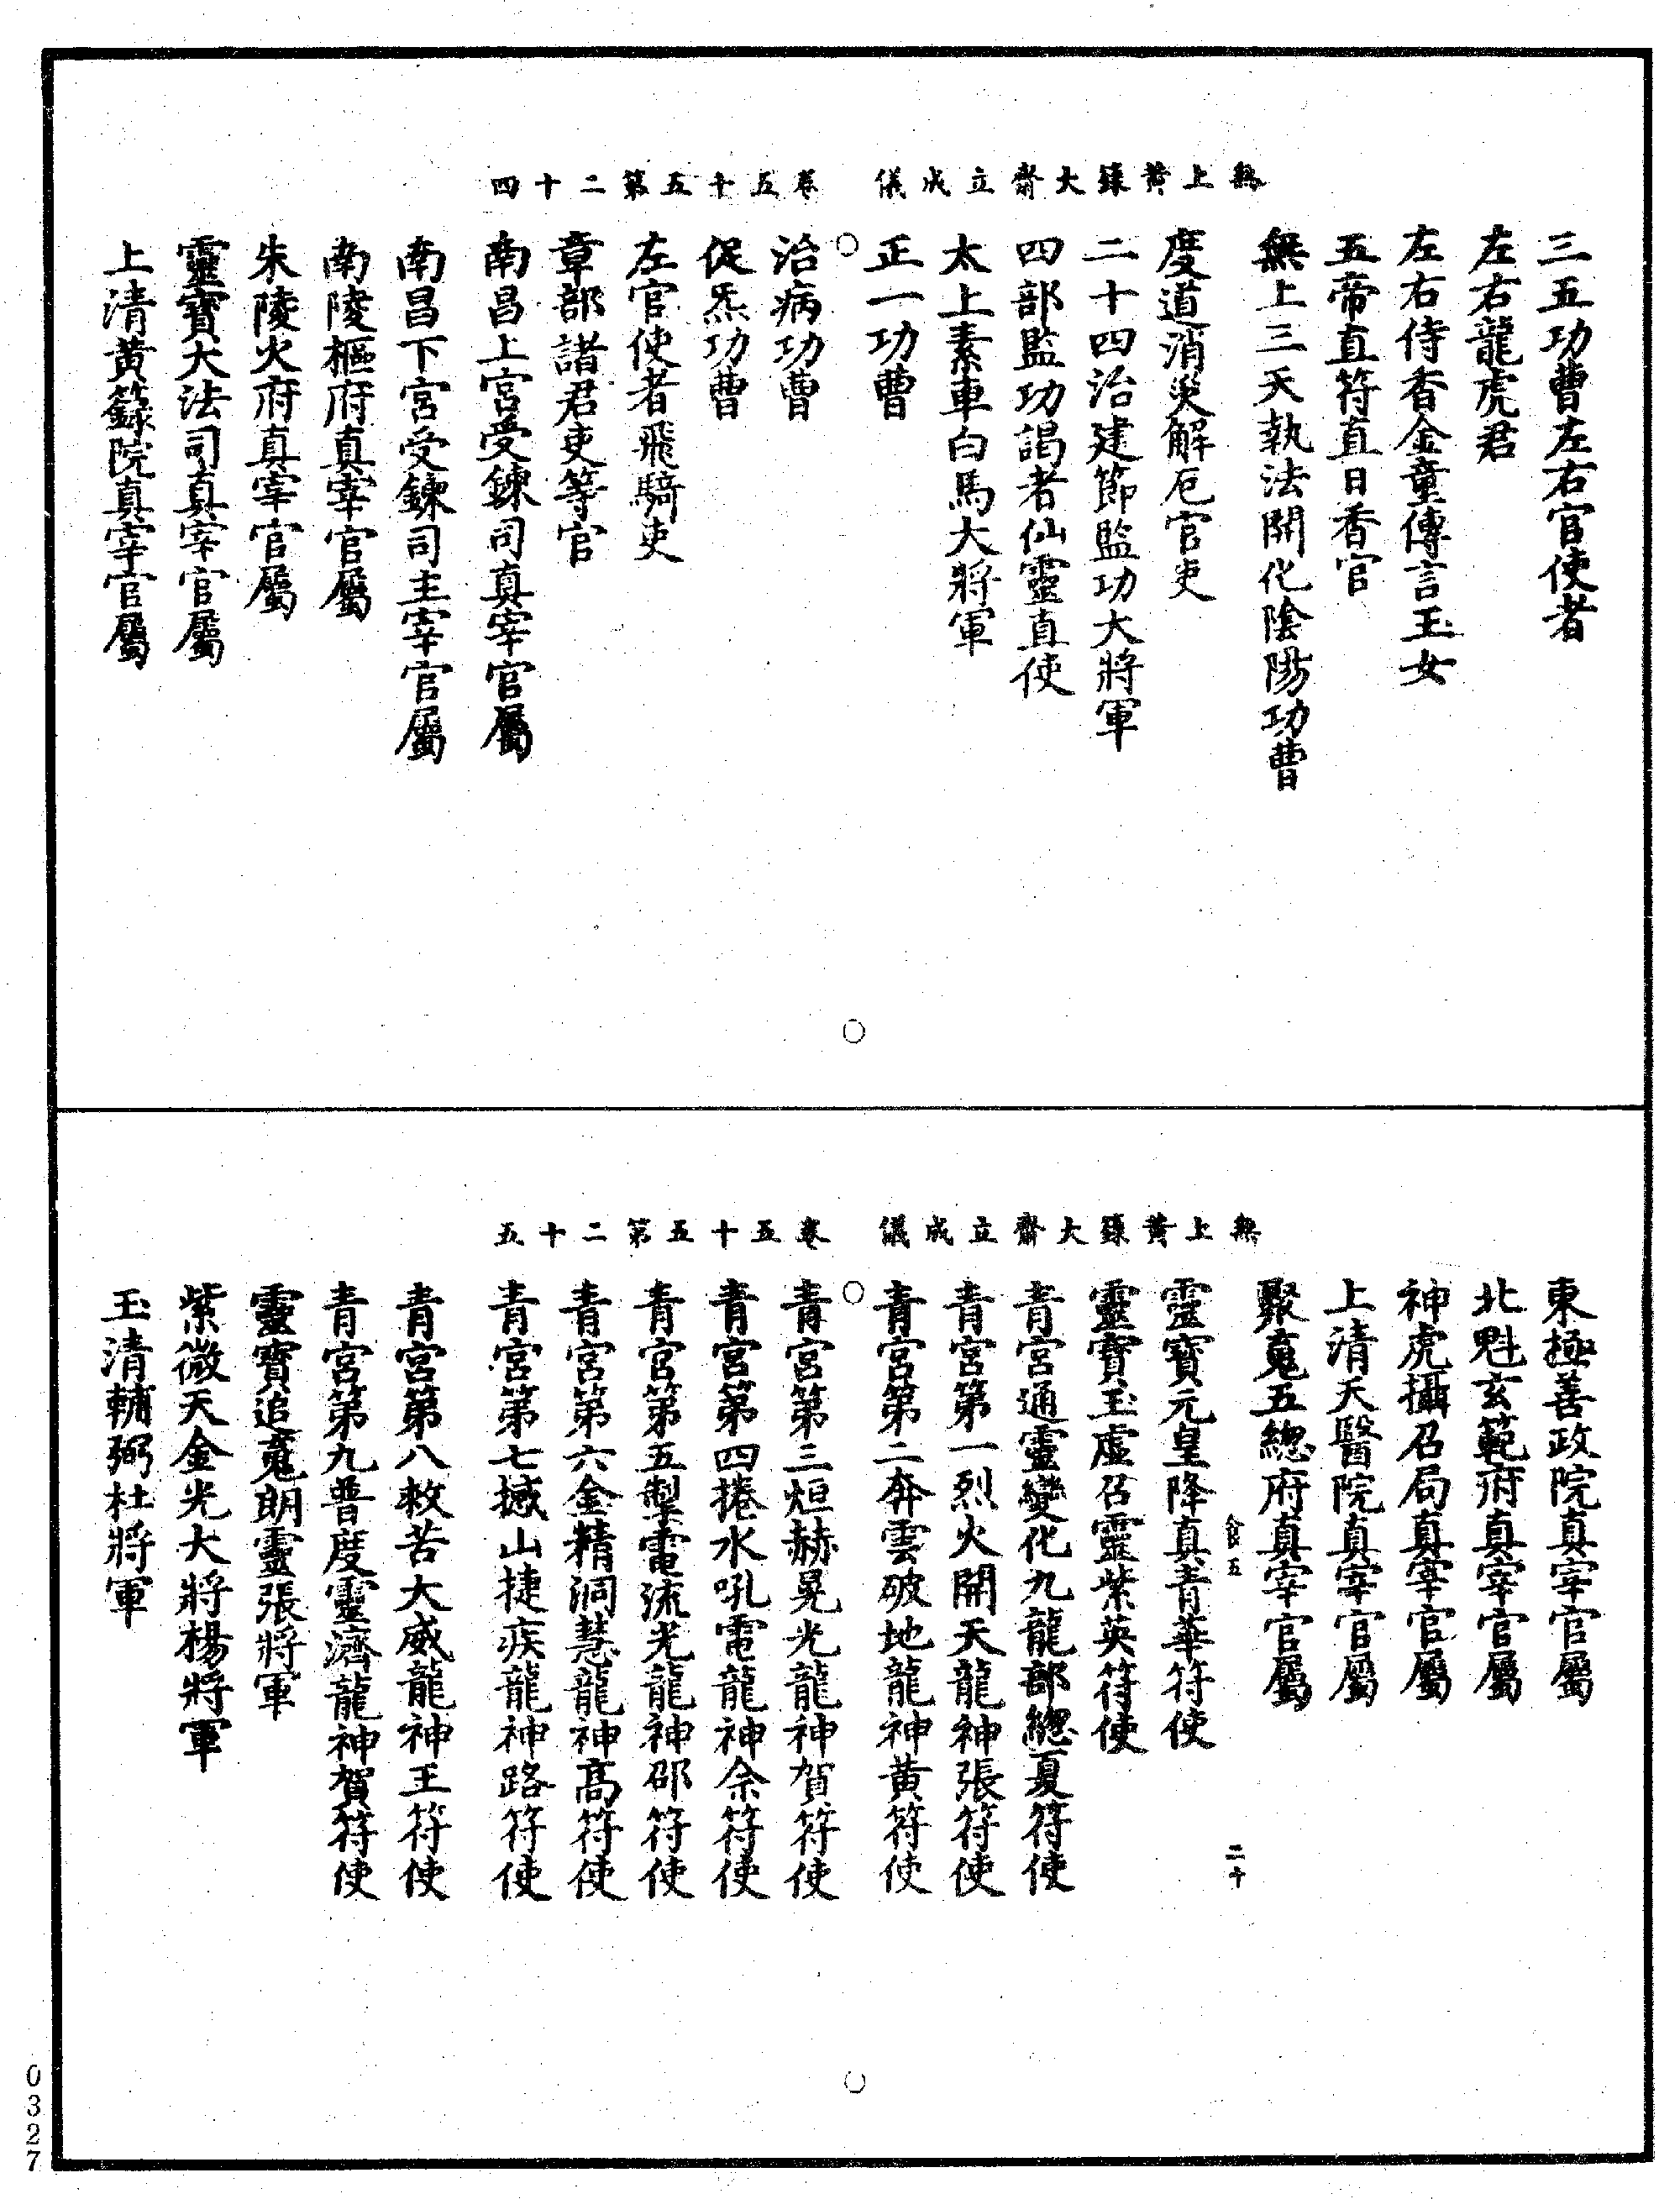 無上黃籙大齋立成儀　卷五十五第二十四
三五功曹左右官使者
左右龍虎君
左右侍香金童傳言玉女
五帝直符直日香官
無上三天執法開化陰陽功曹
度道消災解厄官吏
二十四治建節監功大將軍
四部監功謁者仙靈直使
太上素車白馬大將軍
正一功曹
治病功曹
促炁功曹
左官使者飛騎吏
章部諸君吏等官
南昌上宮受鍊司真宰官屬
南昌下宮受鍊司主宰官屬
南陵樞府真宰官屬
朱陵火府真宰官屬
靈寶大法司真宰官屬
上清黃籙院真宰官屬
無上黃籙大齋立成儀　卷五十五第二十五
東極善政院真宰官屬
北魁玄範府真宰官屬
神虎攝召局真宰官屬
上清天醫院真宰官屬
聚䰟五總府真宰官屬
食五　二十
靈寶元皇降真青華符使
靈寶玉虛召靈紫英符使
青宮通靈變化九龍部總夏符使
青宮第一烈火開天龍神張符使
青宮第二奔雲破地龍神黃符使
青宮第三烜赫晃光龍神賀符使
青宮第四捲水吼電龍神佘符使
青宮第五掣電流光龍神邵符使
青宮第六金精洞慧龍神高符使
青宮第七撼山捷疾龍神路符使
青宮第八救苦大威龍神王符使
青宮第九普度靈濟龍神賀符使
靈寶追䰟朗靈張將軍
紫微天金光大將楊將軍
玉清輔弼杜將軍
0327